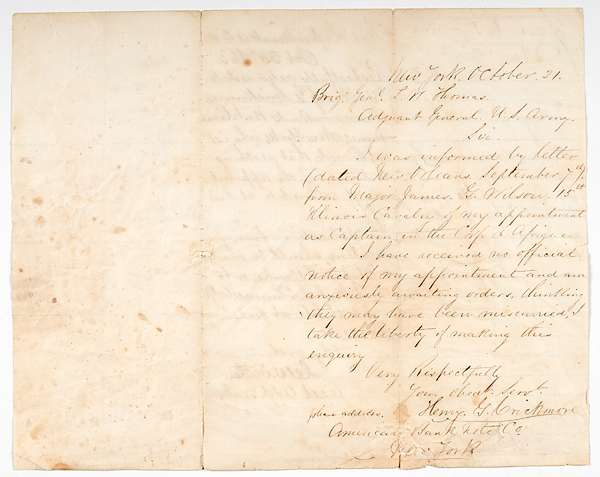 New York, October. 21.
Brig. Genl. L. W. Thomas.
Adjuant General. U. S. Army.
Sir.
I was informed by letter
(dated New Orleans, September 7th)
from Major James. G. Wilson. 15th
Illinois Cavalry of my appointment
as Captain in the Corp d Afrique.
I have received no official
notice of my appointment and am
awaiting orders, thinking
they may have been miscarried, I
take the liberty of making this
enquiry
Very Respectfully
Your Obedt. Servt.
please address. Henry. G. Crickmore
American Bank Note Co
New York